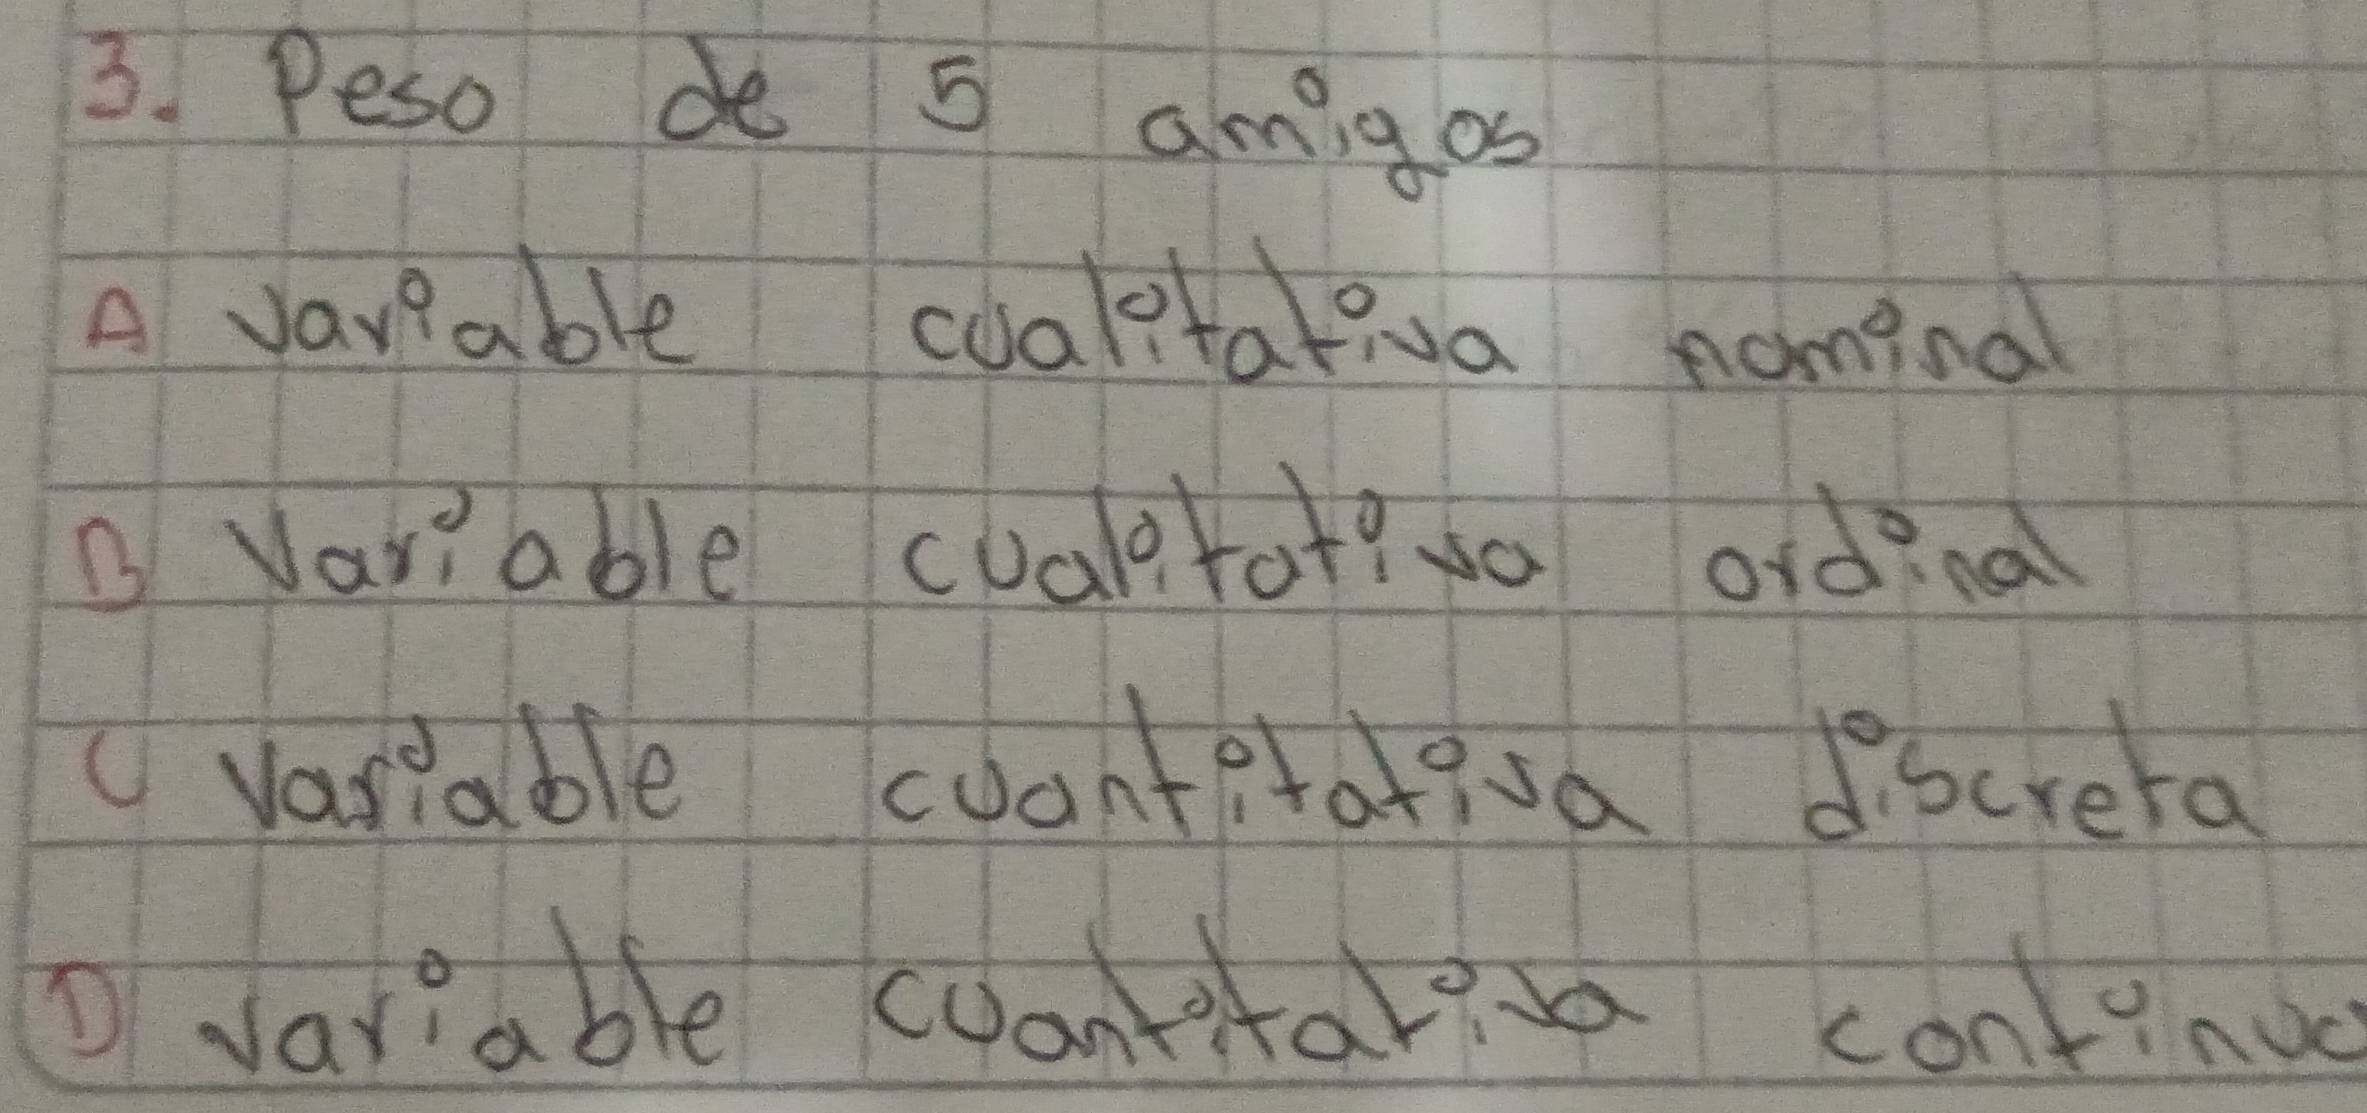 3. Peso de 5 amigos
A variable cualitativa nominal
B Variable cualitativa ordinal
C Variable cuantitativa discreta
D variable cuantitativa continua